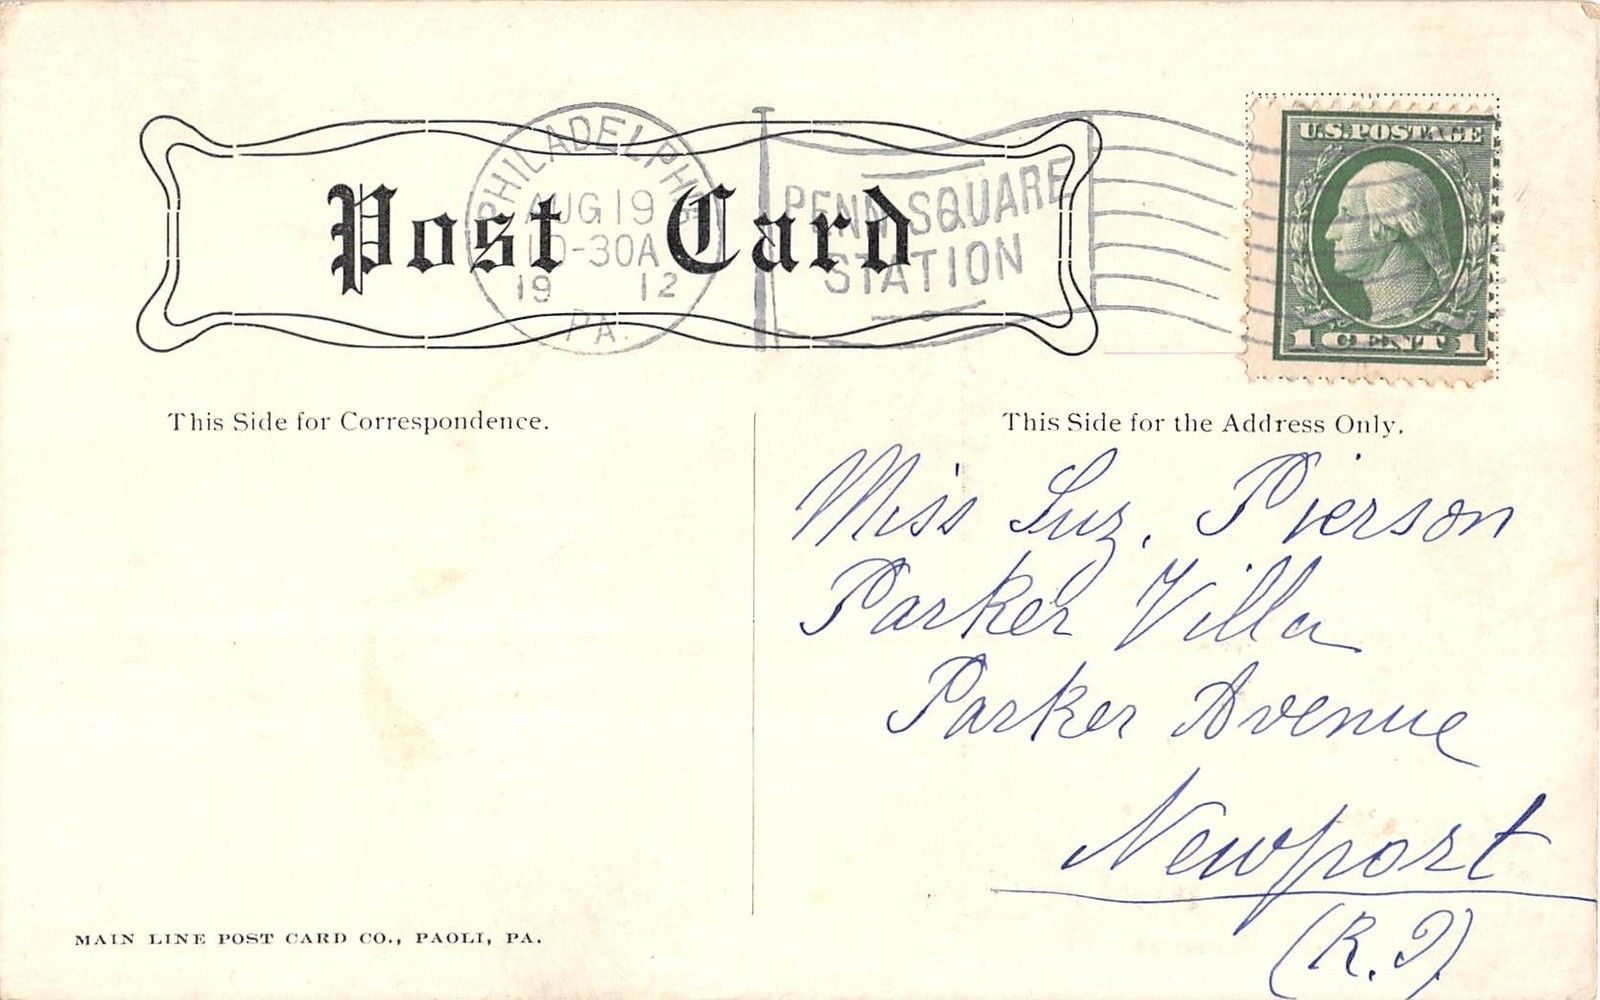 Post Card
PHILADELPHIA
AUG 19
10-30A
19 12
PA.
PENN SQUARE
STATION
U.S. POSTAGE
1 CENT 1
This Side for Correspondence.
This Side for the Address Only.
Miss Suz. Pierson
Parker Villa
Parker Avenue
Newport
(R.I)
MAIN LINE POST CARD CO., PAOLI, PA.